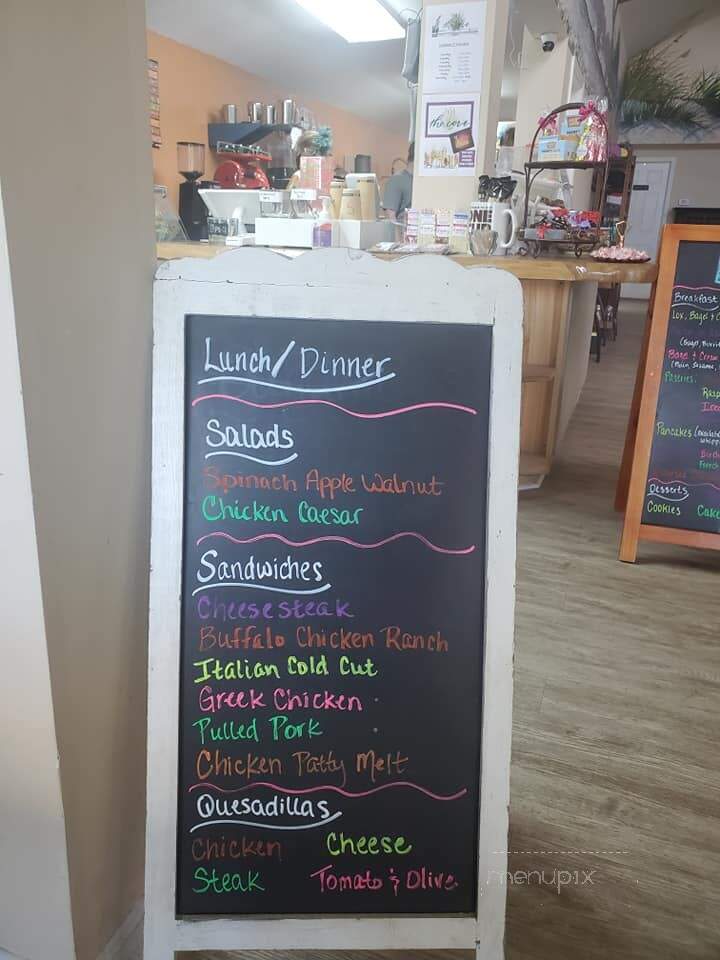 Lunch/Dinner
Salads
Spinach Apple Walnut
Chicken Caesar
Sandwiches
Cheesesteak
Buffalo Chicken Ranch
Italian Cold Cut
Greek Chicken
Pulled Pork
Chicken Patty Melt
Quesadillas
Chicken Cheese
Steak Tomato & Olive
Breakfast
Lox, Bagel
Pastries
Pancakes
Desserts
Cookies
menupix